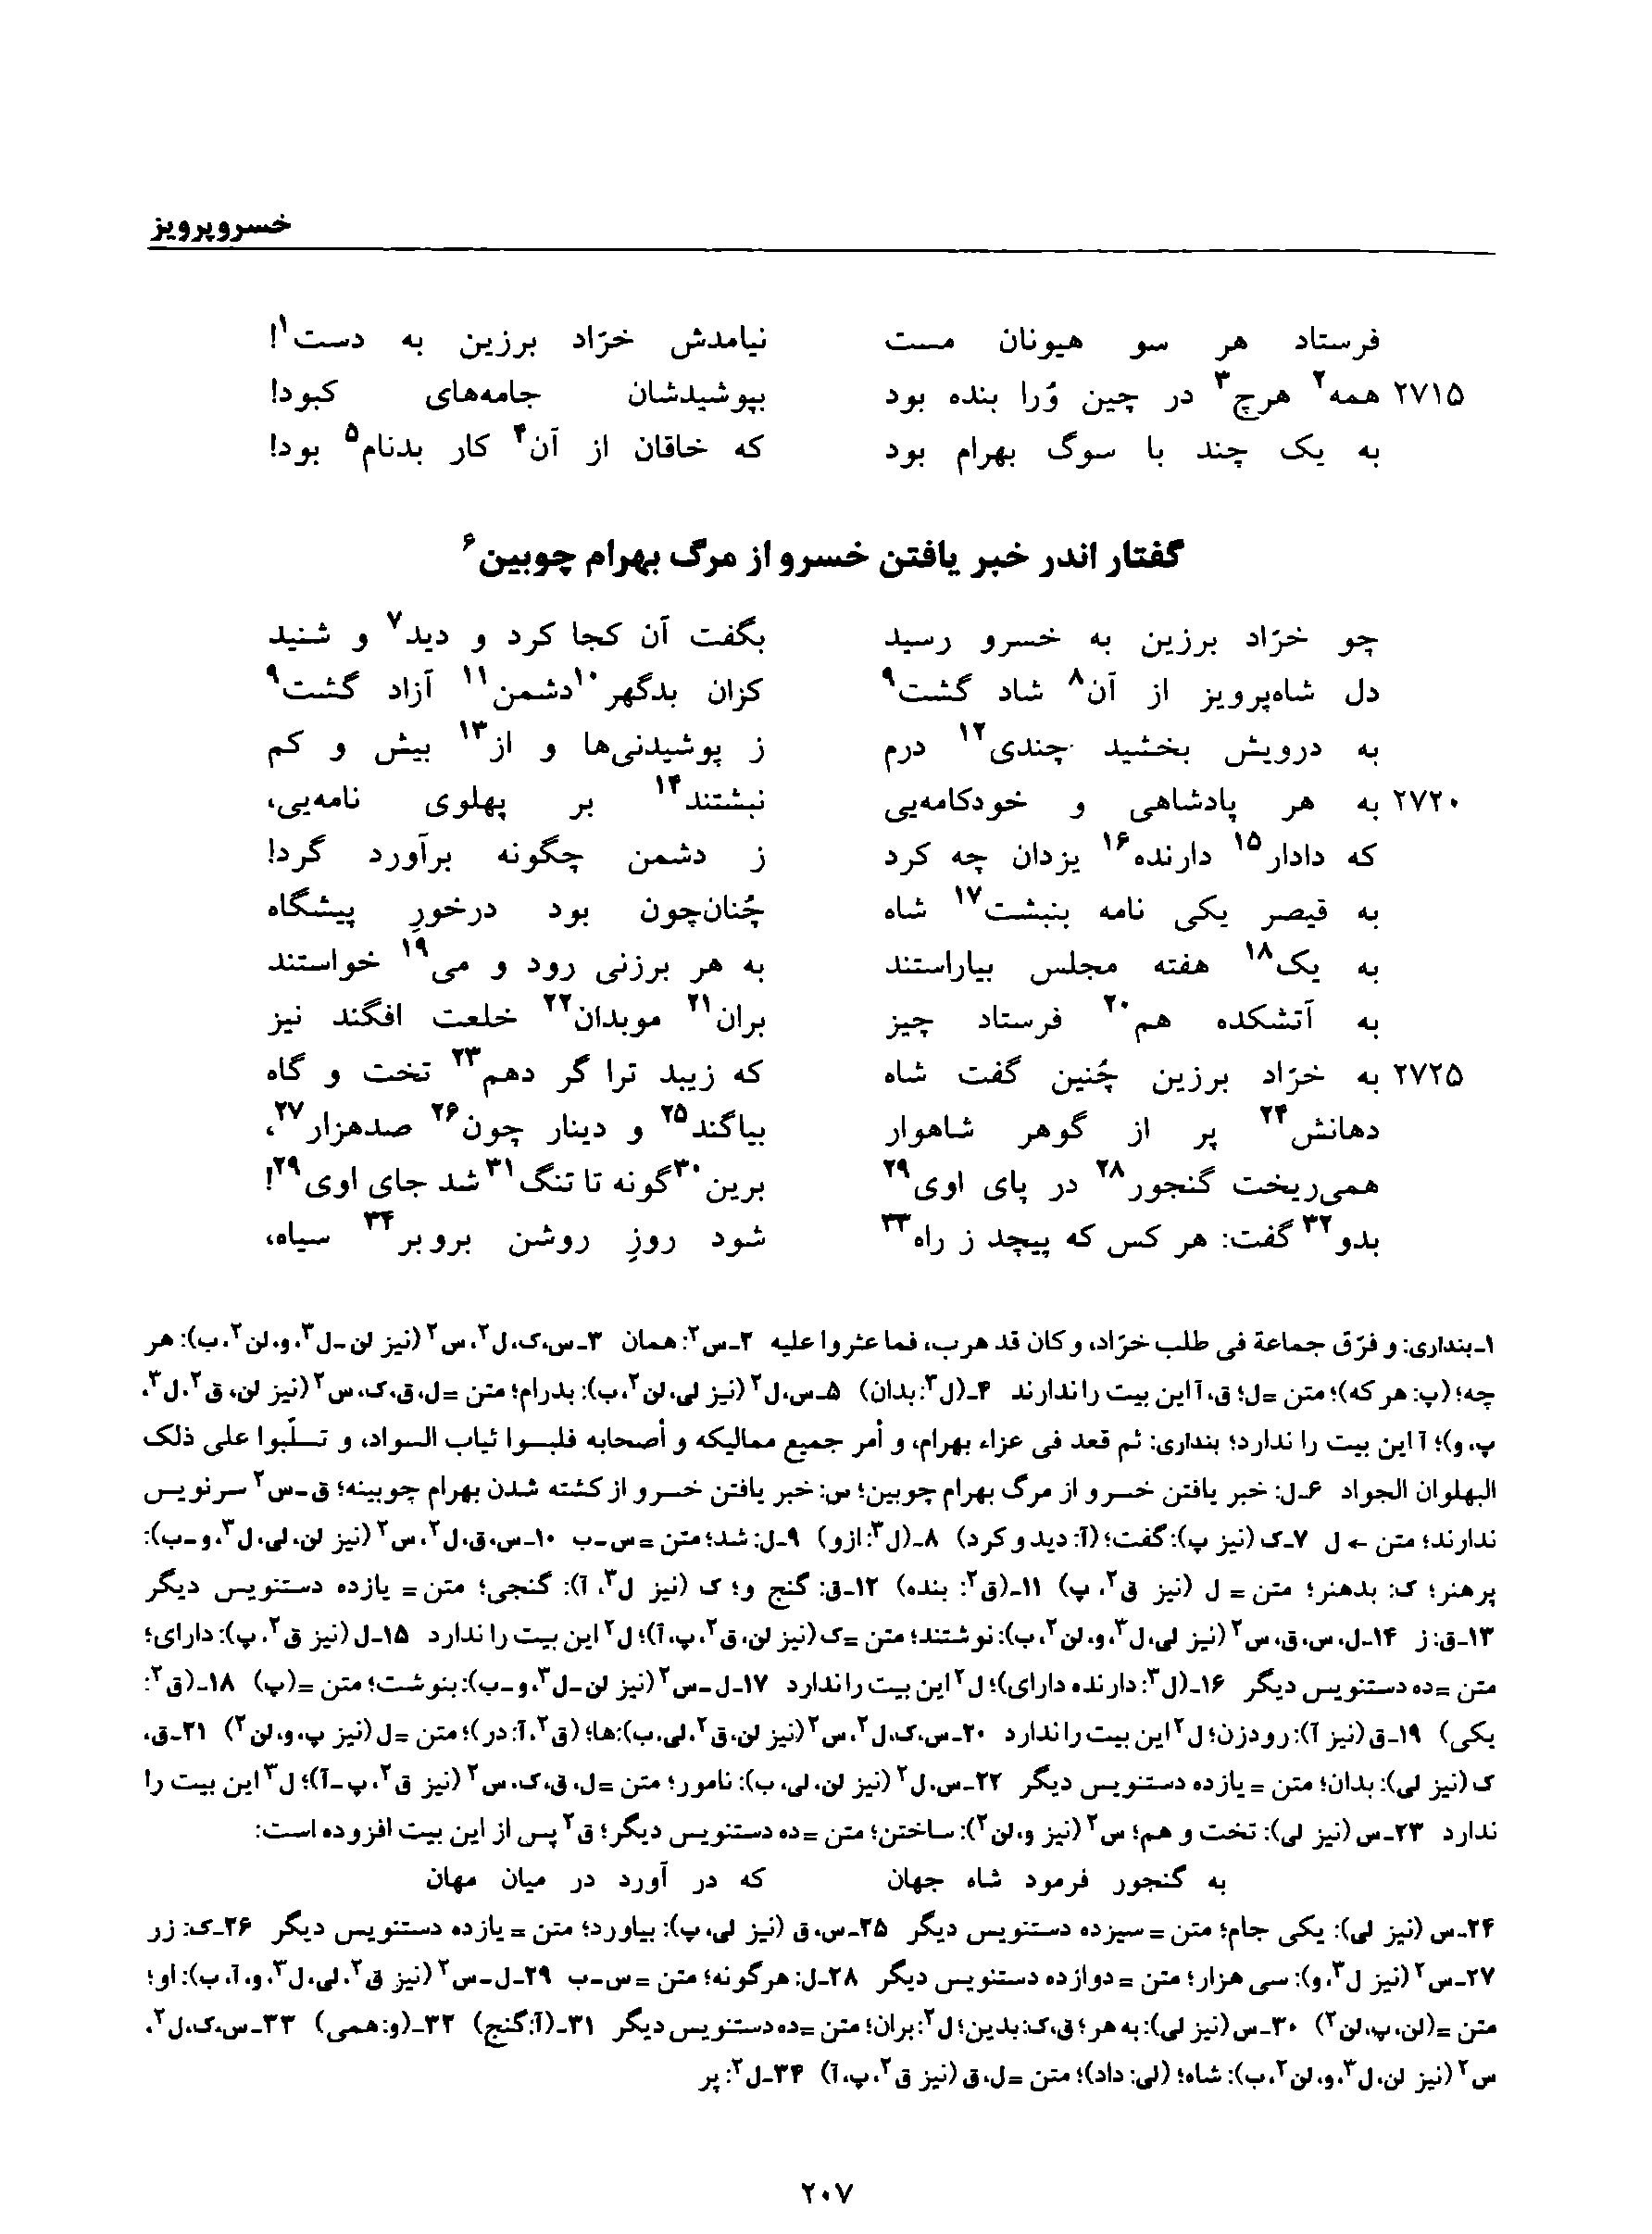 خسروپرویز
فرستاد هر سو هیونان مست نیامدش خرّاد برزین به دست۱!
۲۷۱۵ همه۲ هرچ۳ در چین وُرا بنده بود بپوشیدشان جامه‌های کبود!
به یک چند با سوگ بهرام بود که خاقان از آن۴ کار بدنام۵ بود!
گفتار اندر خبر یافتن خسرو از مرگ بهرام چوبین۶
چو خرّاد برزین به خسرو رسید بگفت آن کجا کرد و دید۷ و شنید
دل شاه‌پرویز از آن۸ شاد گشت۹ کزان بدگهر۱۰ دشمن۱۱ آزاد گشت۹
به درویش بخشید چندی۱۲ درم ز پوشیدنی‌ها و از۱۳ بیش و کم
۲۷۲۰ به هر پادشاهی و خودکامه‌یی نبشتند۱۴ بر پهلوی نامه‌یی،
که دادار۱۵ دارنده۱۶ یزدان چه کرد ز دشمن چگونه برآورد گرد!
به قیصر یکی نامه بنبشت۱۷ شاه چُنان‌چون بود درخورِ پیشگاه
به یک۱۸ هفته مجلس بیاراستند به هر برزنی رود و می۱۹ خواستند
به آتشکده هم۲۰ فرستاد چیز بران۲۱ موبدان۲۲ خلعت افگند نیز
۲۷۲۵ به خرّاد برزین چُنین گفت شاه که زیبد ترا گر دهم۲۳ تخت و گاه
دهانش۲۴ پر از گوهر شاهوار بیاگند۲۵ و دینار چون۲۶ صدهزار۲۷،
همی‌ریخت گنجور۲۸ در پای اوی۲۹ برین۳۰ گونه تا تنگ۳۱ شد جای اوی۲۹!
بدو۳۲ گفت: هر کس که پیچد ز راه۳۳ شود روزِ روشن بروبر۳۴ سیاه،
۱ـ بنداری: و فرّق جماعة فی طلب خرّاد، و کان قد هرب، فما عثروا علیه ۲ـ س۲: همان ۳ـ س، ک، ل۲، س۲ (نیز لن ـ ل۳، و، لن۲، ب): هر
چه؛ (پ: هر که)؛ متن = ل؛ ق، آ این بیت را ندارند ۴ـ (ل۳: بدان) ۵ـ س، ل۲ (نیز لی، لن۲، ب): بدرام؛ متن = ل، ق، ک، س۲ (نیز لن، ق۲، ل۳،
پ، و)؛ آ این بیت را ندارد؛ بنداری: ثم قعد فی عزاء بهرام، و أمر جمیع ممالیکه و أصحابه فلبسوا ثیاب السواد، و تسلّبوا علی ذلک
البهلوان الجواد ۶ـ ل: خبر یافتن خسرو از مرگ بهرام چوبین؛ س: خبر یافتن خسرو از کشته شدن بهرام چوبینه؛ ق ـ س۲ سرنویس
ندارند؛ متن ← ل ۷ـ ک (نیز پ): گفت؛ (آ: دید و کرد) ۸ـ (ل۳: ازو) ۹ـ ل: شد؛ متن = س ـ ب ۱۰ـ س، ق، ل۲، س۲ (نیز لن، لی، ل۳، و ـ ب):
پرهنر؛ ک: بدهنر؛ متن = ل (نیز ق۲، پ) ۱۱ـ (ق۲: بنده) ۱۲ـ ق: گنج و؛ ک (نیز ل۳، آ): گنجی؛ متن = یازده دستنویس دیگر
۱۳ـ ق: ز ۱۴ـ ل، س، ق، س۲ (نیز لی، ل۳، و، لن۲، ب): نوشتند؛ متن = ک (نیز لن، ق۲، پ، آ)؛ ل۲ این بیت را ندارد ۱۵ـ ل (نیز ق۲، پ): دارای؛
متن = ده دستنویس دیگر ۱۶ـ (ل۳: دارنده دارای)؛ ل۲ این بیت را ندارد ۱۷ـ ل ـ س۲ (نیز لن ـ ل۳، و ـ ب): بنوشت؛ متن = (پ) ۱۸ـ (ق۲:
یکی) ۱۹ـ ق (نیز آ): رودزن؛ ل۲ این بیت را ندارد ۲۰ـ س، ک، ل۲، س۲ (نیز لن، ق۲، لی، ب): ها؛ (ق۲، آ: در)؛ متن = ل (نیز پ، و، لن۲) ۲۱ـ ق،
ک (نیز لی): بدان؛ متن = یازده دستنویس دیگر ۲۲ـ س، ل۲ (نیز لن، لی، ب): نامور؛ متن = ل، ق، ک، س۲ (نیز ق۲، پ ـ آ)؛ ل۳ این بیت را
ندارد ۲۳ـ س (نیز لی): تخت و هم؛ س۲ (نیز و، لن۲): ساختن؛ متن = ده دستنویس دیگر؛ ق۲ پس از این بیت افزوده است:
به گنجور فرمود شاه جهان که در آورد در میان مهان
۲۴ـ س (نیز لی): یکی جام؛ متن = سیزده دستنویس دیگر ۲۵ـ س، ق (نیز لی، پ): بیاورد؛ متن = یازده دستنویس دیگر ۲۶ـ ک: زر
۲۷ـ س۲ (نیز ل۳، و): سی هزار؛ متن = دوازده دستنویس دیگر ۲۸ـ ل: هرگونه؛ متن = س ـ ب ۲۹ـ ل ـ س۲ (نیز ق۲، لی، ل۳، و، آ، ب): او؛
متن = (لن، پ، لن۲) ۳۰ـ س (نیز لی): به هر؛ ق، ک: بدین؛ ل۲: بران؛ متن = ده دستنویس دیگر ۳۱ـ (آ: گنج) ۳۲ـ (و: همی) ۳۳ـ س، ک، ل۲،
س۲ (نیز لن، ل۳، و، لن۲، ب): شاه؛ (لی: داد)؛ متن = ل، ق (نیز ق۲، پ، آ) ۳۴ـ ل۲: پر
۲۰۷